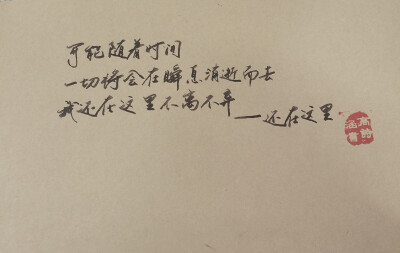 可能随着时间
一切将会在瞬息消逝而去
我还在这里不离不弃
——还在这里